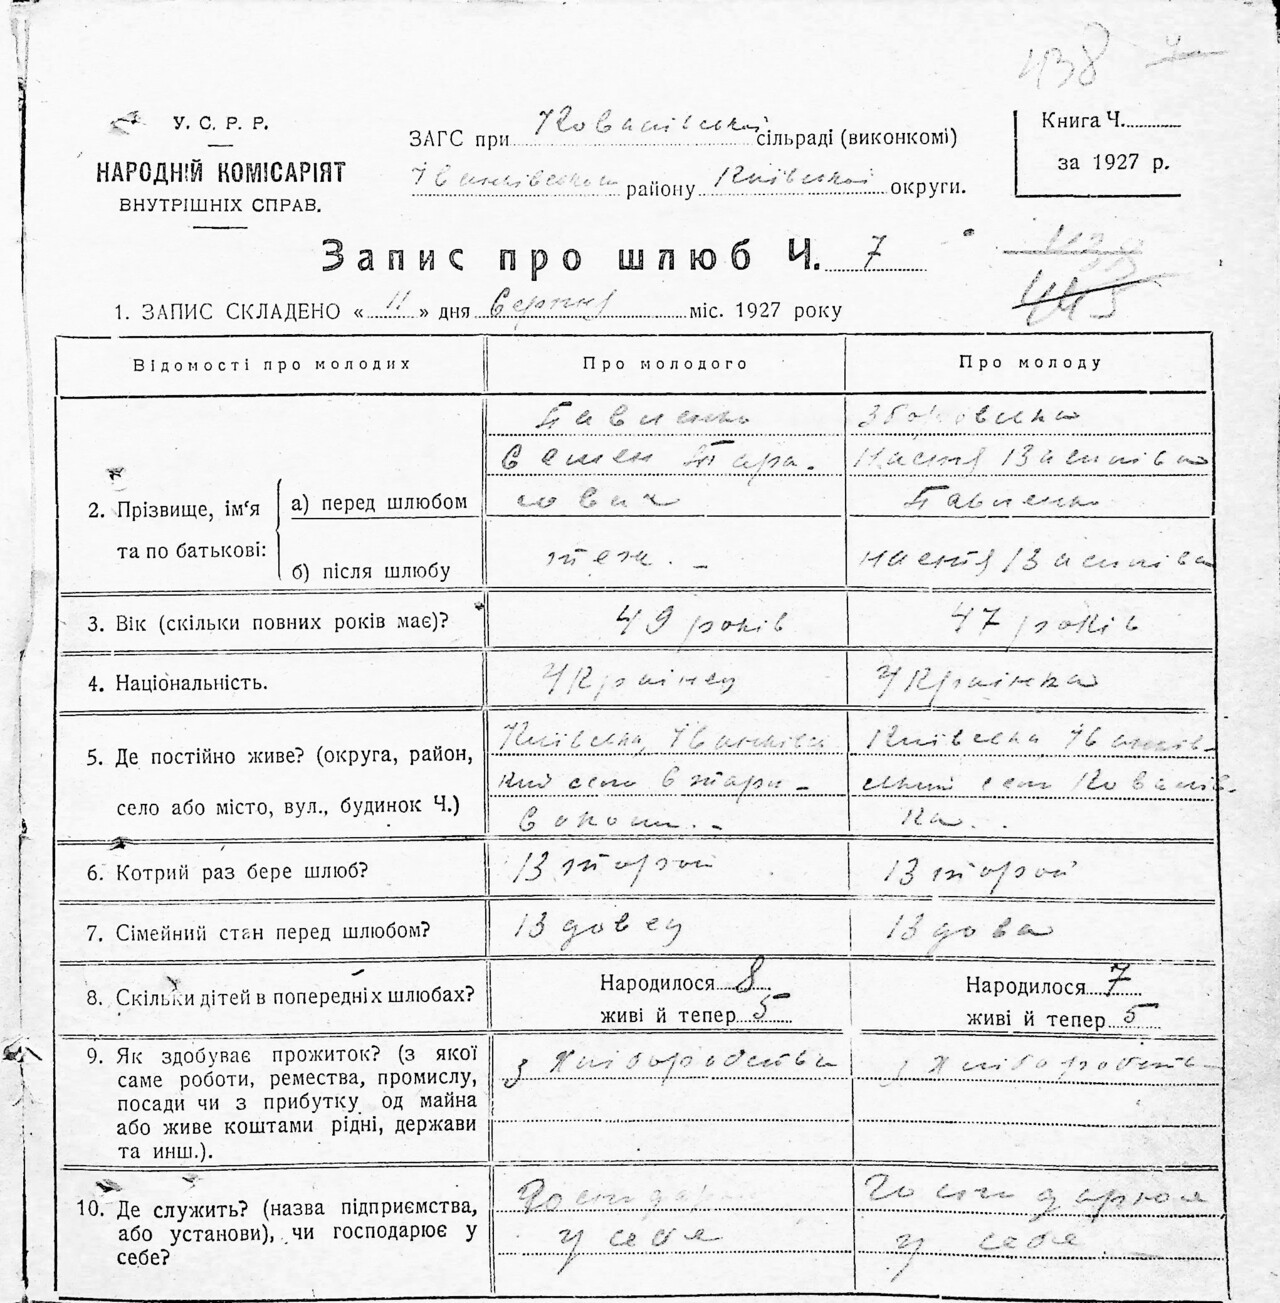 438
У. С. Р. Р.
НАРОДНІЙ КОМІСАРІЯТ
ВНУТРІШНІХ СПРАВ.
ЗАГС при Кованівській сільраді (виконкомі)
району Київської округи.
Книга Ч.
за 1927 р.
Запис про шлюб Ч. 7
443
1. ЗАПИС СКЛАДЕНО « 11 » дня Серпня міс. 1927 року
Відомості про молодих Про молодого Про молоду
2. Прізвище, ім'я та по батькові:
а) перед шлюбом
б) після шлюбу
Павленко
Семен Тара-
сович
теж. -
Настя Василівна
Павленко
Настя Василівна
3. Вік (скільки повних років має)? 49 років 47 років
4. Національність. Українец Українка
5. Де постійно живе? (округа, район,
село або місто, вул., будинок Ч.)
Київська, Іванків
кий село
Київська Іванків-
ський село Кованів-
ка.
6. Котрий раз бере шлюб? Второй Второй
7. Сімейний стан перед шлюбом? Вдовец Вдова
8. Скільки дітей в попередніх шлюбах? Народилося 8 Народилося 7
живі й тепер 5 живі й тепер 5
9. Як здобуває прожиток? (з якої
саме роботи, ремества, промислу,
посади чи з прибутку од майна
або живе коштами рідні, держави
та инш.).
з хліборобства з хліборобств
10. Де служить? (назва підприємства,
або установи), чи господарює у
себе?
Господар
у себе
Господарює
у себе